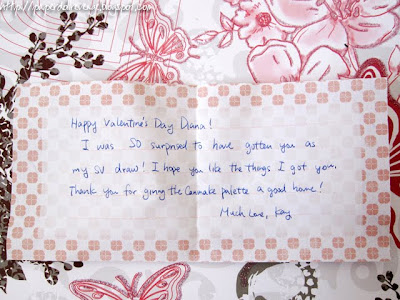 Happy Valentine's Day Diana!
I was SO surprised to have gotten you as
my SV draw! I hope you like the things I got you.
Thank you for giving the Canmake palette a good home!
Much Love, Kay